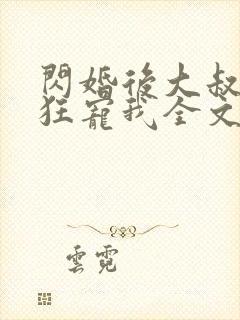 閃婚後大叔
狂寵我全文
雲霓